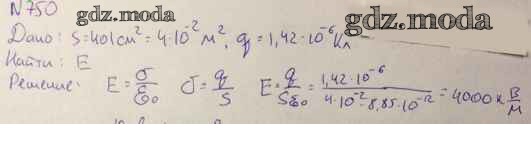 N750
gdz.moda
gdz.moda
Дано: S=401см²=4·10⁻² м², q=1,42·10⁻⁶ Кл
Найти: E
Решение: E=σ/ε₀ σ=q/S E=q/Sε₀=1,42·10⁻⁶/4·10⁻²·8,85·10⁻¹²=4000 к В/м